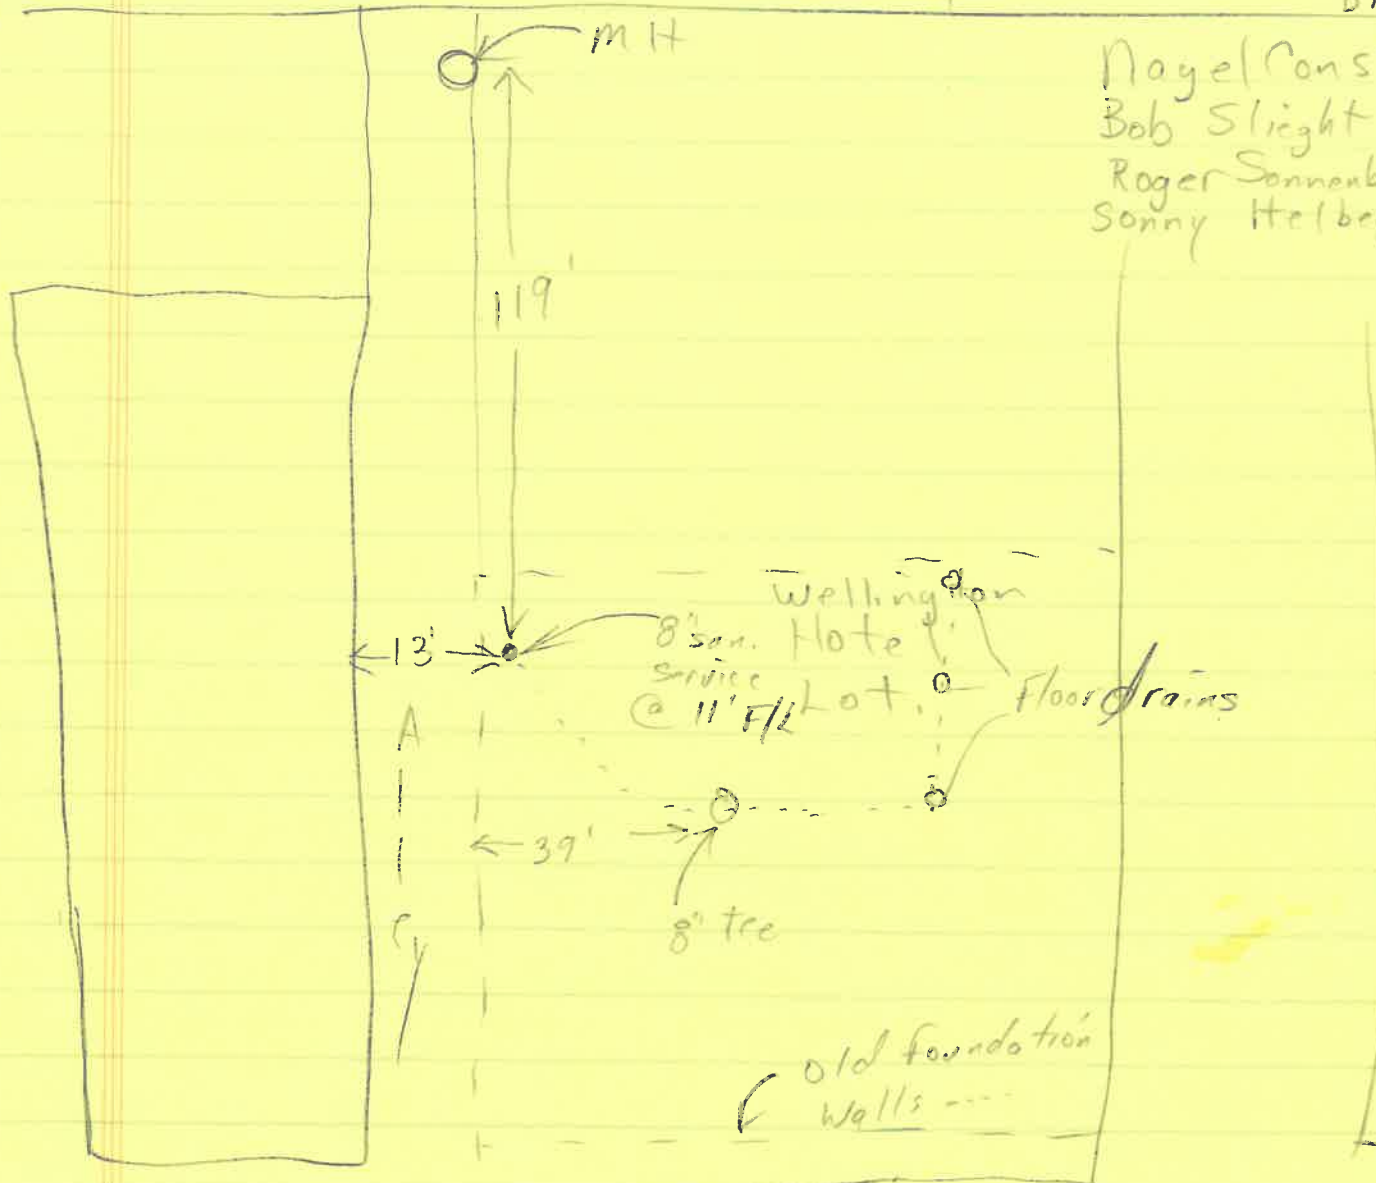 MH
Nagel Cons
Bob Slieght
Roger Sonnenb
Sonny Helbe
119'
Wellington
8" san. Hote
service
@ 11' F/L Lot.
13'
Floor drains
Alley
39'
8" tee
old foundation
walls ----